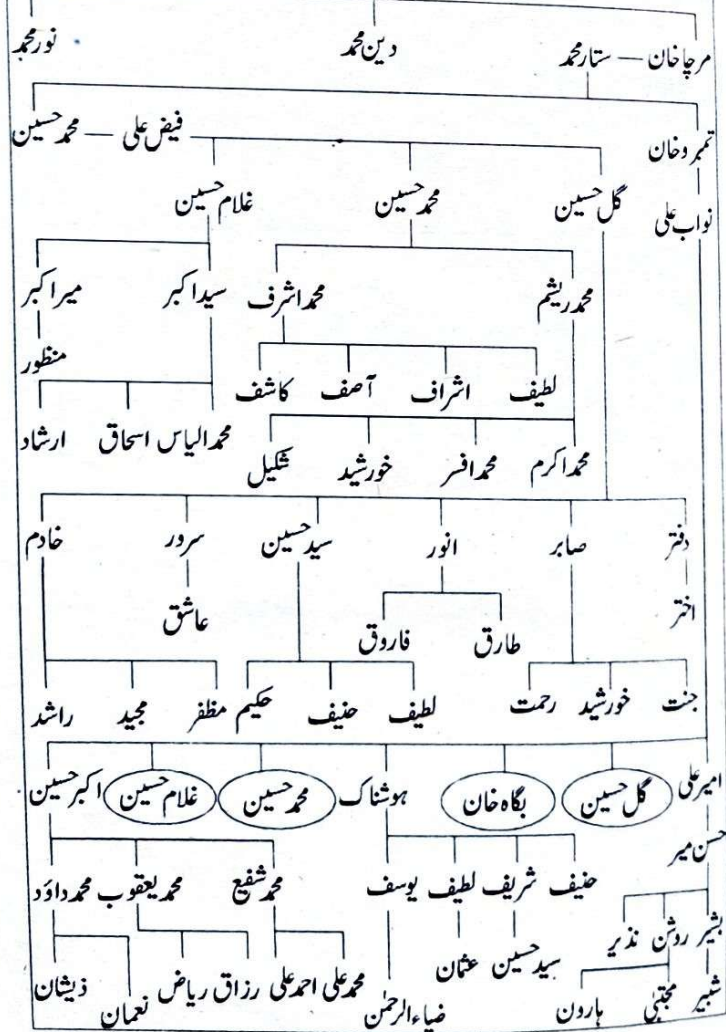 مرچاخان — ستار محمد دین محمد نور محمد
تمبروخان فیض علی — محمد حسین
نواب علی گل حسین محمد حسین غلام حسین
محمد ریشم محمد اشرف سید اکبر میر اکبر
منظور
لطیف اشراف آصف کاشف
محمد الیاس اسحاق ارشاد
محمد اکرم محمد افسر خورشید شکیل
دفتر صابر انور سید حسین سرور خادم
اختر عاشق
طارق فاروق
جنت خورشید رحمت لطیف حنیف حکیم مظفر مجید راشد
امیر علی گل حسین بگاہ خان ہوشناک محمد حسین غلام حسین اکبر حسین
حسن میر
حنیف شریف لطیف یوسف محمد شفیع محمد یعقوب محمد داؤد
بشیر روشن نذیر
سید حسین عثمان محمد علی احمد علی رزاق ریاض ذیشان
شبیر مجتبیٰ ہارون ضیاء الرحمٰن نعمان